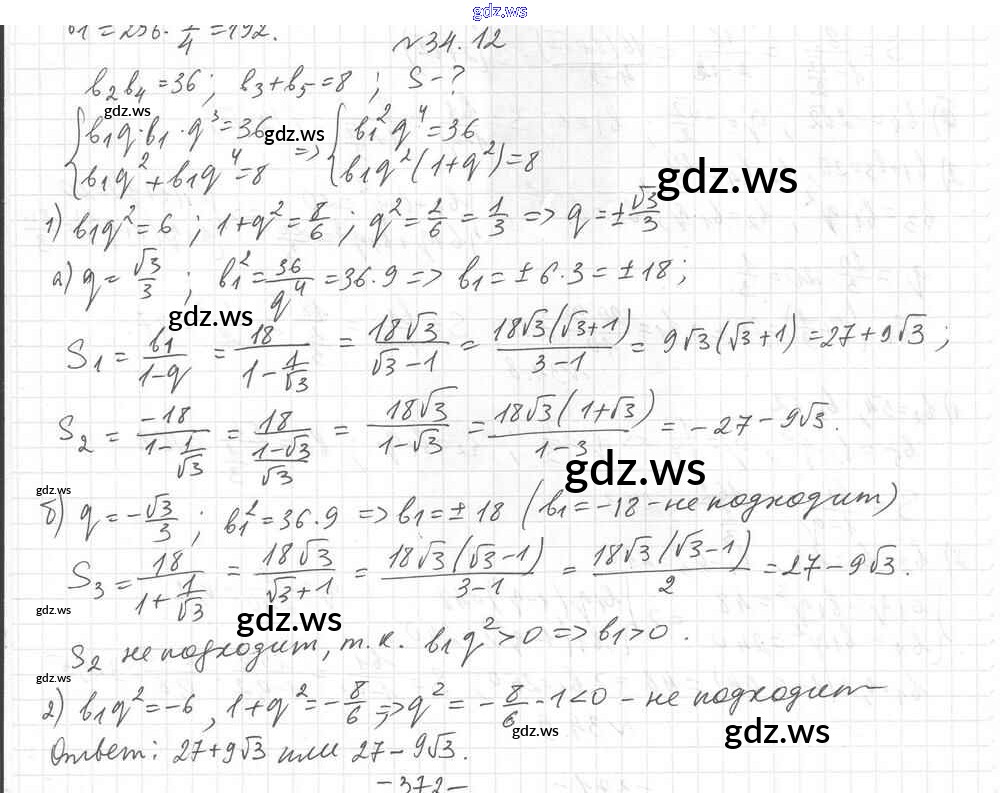 gdz.ws
b1 = 256 · 3/4 = 192.
№34.12
b₂b₄ = 36 ; b₃ + b₅ = 8 ; S - ?
gdz.ws
{ b₁q · b₁ · q³ = 36 gdz.ws => { b₁²q⁴ = 36
{ b₁q² + b₁q⁴ = 8 { b₁q²(1+q²) = 8
gdz.ws
1) b₁q² = 6 ; 1+q² = 8/6 ; q² = 2/6 = 1/3 => q = ± √3/3
а) q = √3/3 ; b₁² = 36/q⁴ = 36·9 => b₁ = ± 6·3 = ± 18 ;
gdz.ws
S₁ = b₁/(1-q) = 18/(1 - 1/√3) = 18√3/(√3-1) = 18√3(√3+1)/(3-1) = 9√3(√3+1) = 27 + 9√3 ;
S₂ = -18/(1 - 1/√3) = 18/((1-√3)/√3) = 18√3/(1-√3) = 18√3(1+√3)/(1-3) = -27 - 9√3.
gdz.ws
gdz.ws
б) q = -√3/3 ; b₁² = 36·9 => b₁ = ± 18 (b₁ = -18 - не подходит)
S₃ = 18/(1 + 1/√3) = 18√3/(√3+1) = 18√3(√3-1)/(3-1) = 18√3(√3-1)/2 = 27 - 9√3.
gdz.ws
gdz.ws
S₂ не подходит, т.к. b₁q² > 0 => b₁ > 0.
gdz.ws
2) b₁q² = -6 , 1+q² = -8/6 ; => q² = -8/6 - 1 < 0 - не подходит
gdz.ws
gdz.ws
Ответ: 27+9√3 или 27-9√3.
-372-